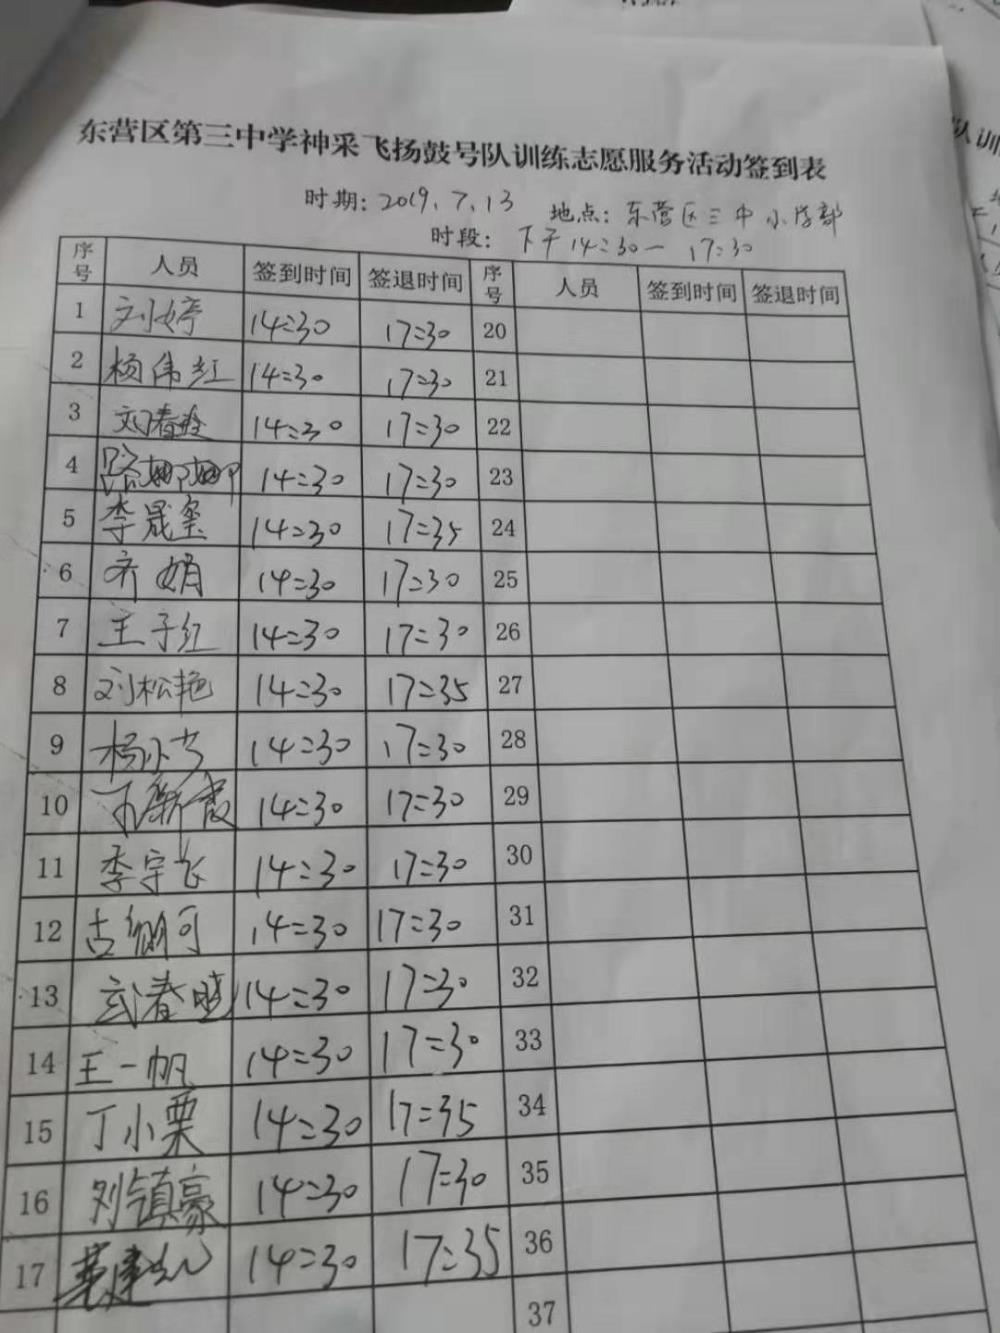 东营区第三中学神采飞扬鼓号队训练志愿服务活动签到表
时期：2019.7.13 地点：东营区三中小学部
时段：下午14:30—17:30
序号 人员 签到时间 签退时间 序号 人员 签到时间 签退时间
1 刘婷 14:30 17:30 20
2 杨伟红 14:30 17:30 21
3 刘春玲 14:30 17:30 22
4 路娜娜 14:30 17:30 23
5 李晟玺 14:30 17:35 24
6 齐娟 14:30 17:30 25
7 王子红 14:30 17:30 26
8 刘松艳 14:30 17:35 27
9 杨小艺 14:30 17:30 28
10 新霞 14:30 17:30 29
11 李宇飞 14:30 17:30 30
12 古 可 14:30 17:30 31
13 武春晓 14:30 17:30 32
14 王一帆 14:30 17:30 33
15 丁小栗 14:30 17:35 34
16 刘镇豪 14:30 17:30 35
17 14:30 17:35 36
37